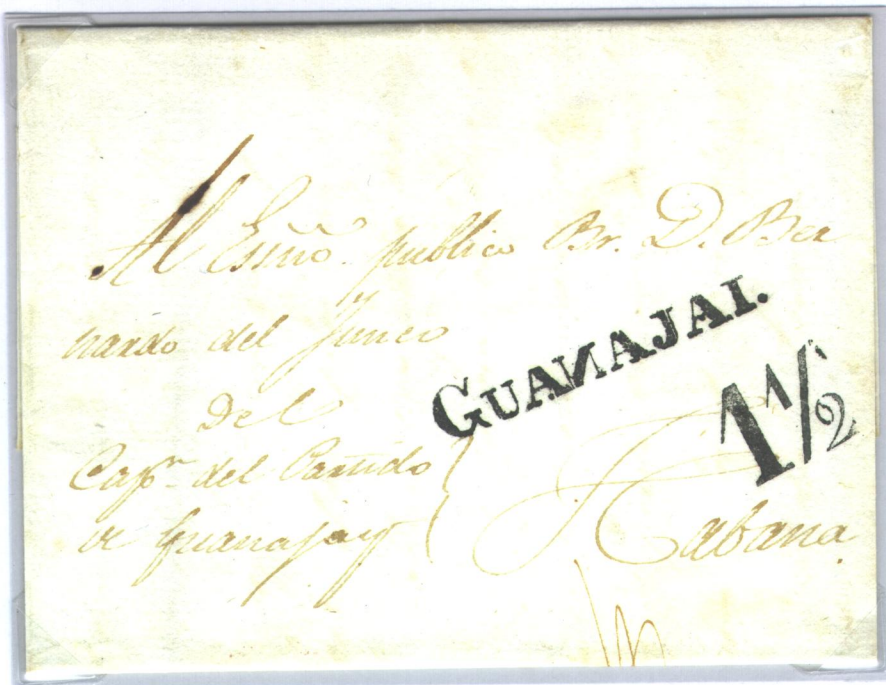 Al Essño. publico Br. D. Ber
nardo del Junco
GUANAJAI.
1 1/2
Del
Capn. del Partido
de Guanajay
Habana